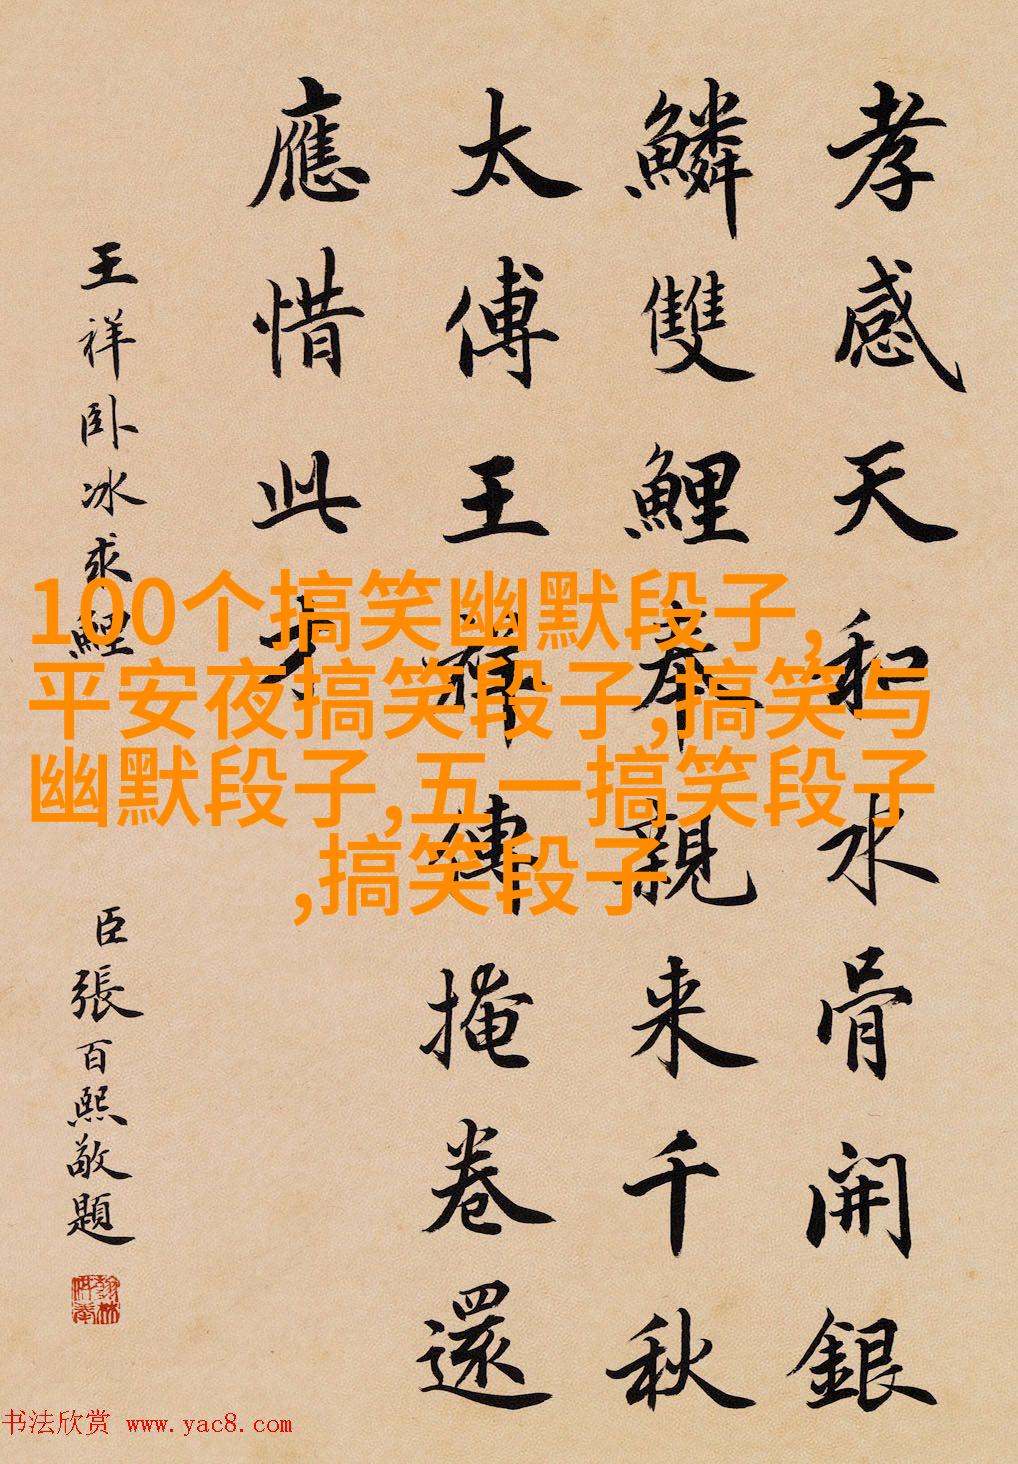 孝感天和水骨開銀
鱗雙鯉奉親来千秋
太傅王祥傳掩卷還
應惜此
王祥卧冰求鯉
臣張百熙敬題
100个搞笑幽默段子,
平安夜搞笑段子,搞笑与
幽默段子,五一搞笑段子
,搞笑段子
书法欣赏 www.yac8.com